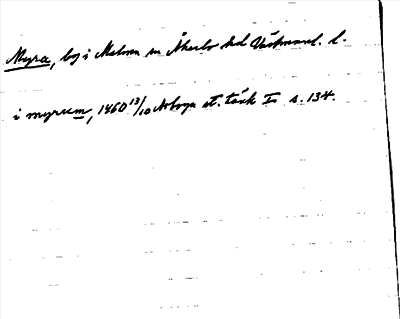 Myra, by i Malma sn Åkerbo hd Västmanl. l.
i myrum, 1460 13/10 Arboga st. täck I s. 134.